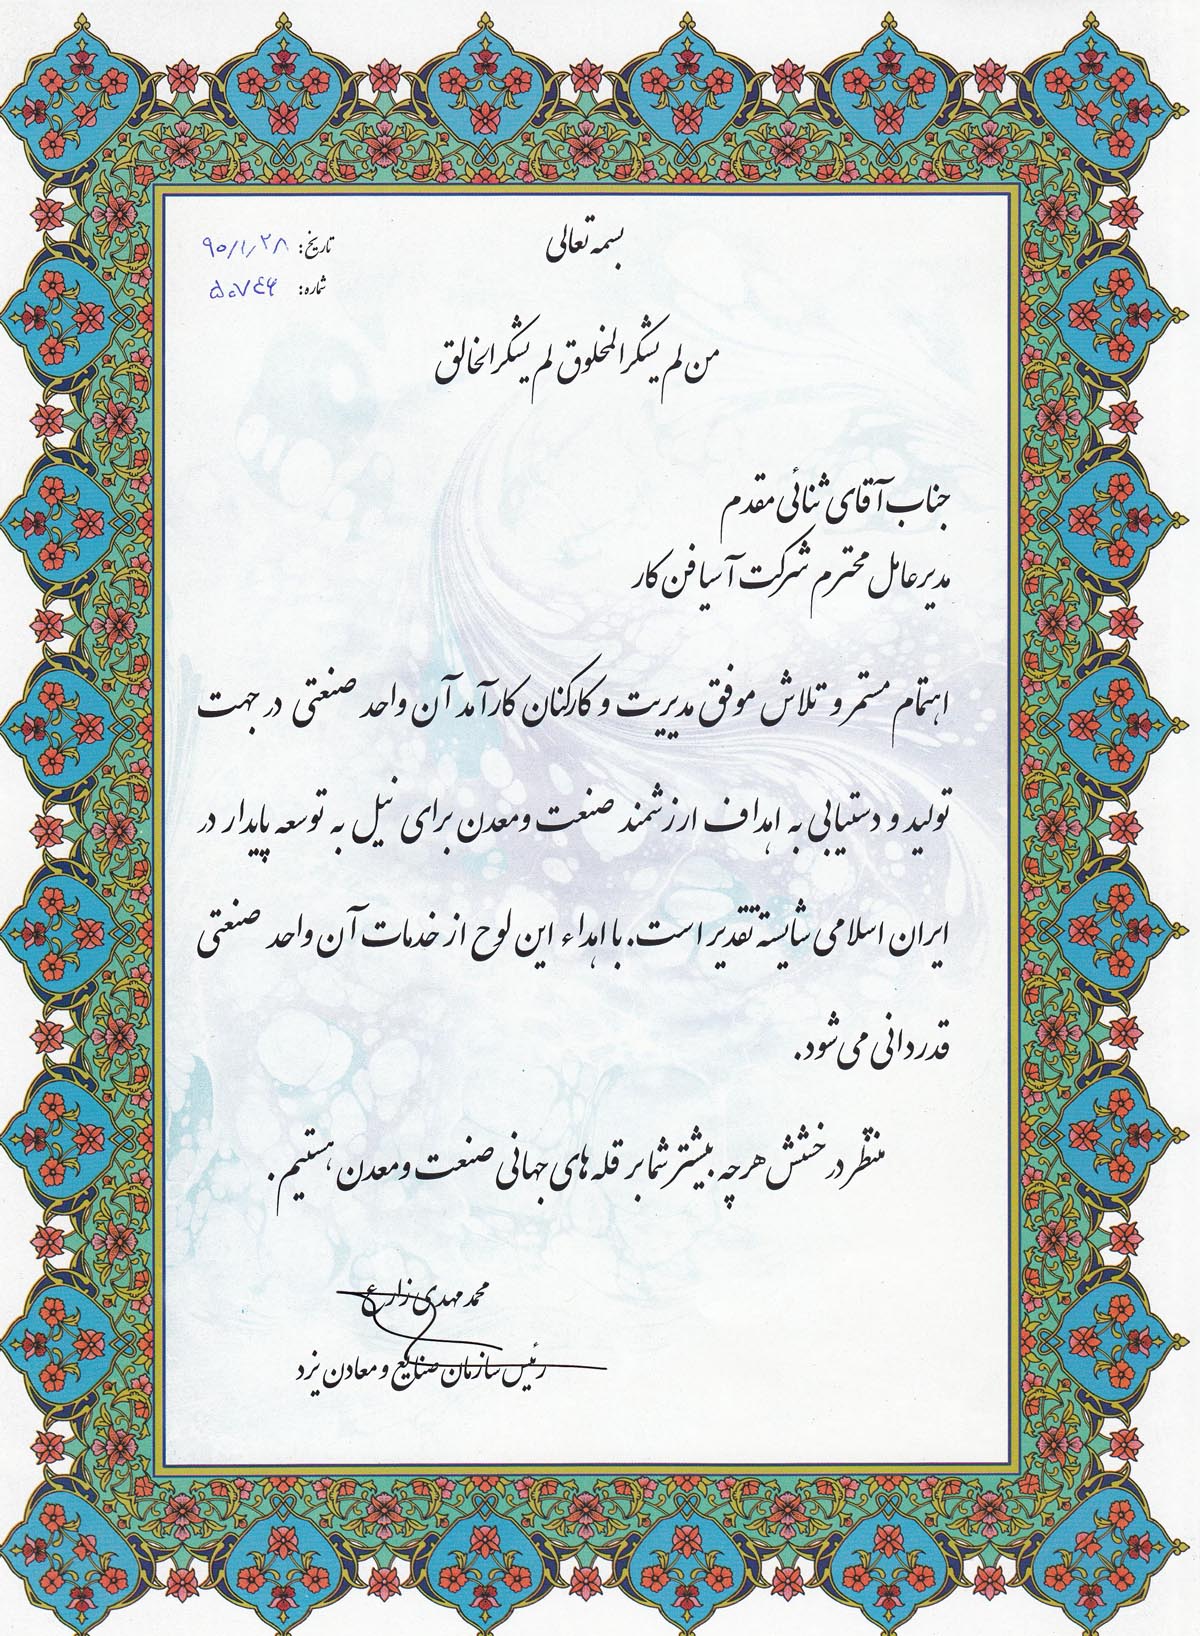 بسمه تعالی
تاریخ: ۹۰/۱/۲۸
شماره: ۵۰۷۴۶
من لم یشکر المخلوق لم یشکر الخالق
جناب آقای ثنائی مقدم
مدیرعامل محترم شرکت آسیا فن کار
اهتمام مستمر و تلاش موفق مدیریت و کارکنان کارآمد آن واحد صنعتی در جهت
تولید و دستیابی به اهداف ارزشمند صنعت و معدن برای نیل به توسعه پایدار در
ایران اسلامی شایسته تقدیر است. با اهداء این لوح از خدمات آن واحد صنعتی
قدردانی می شود.
منتظر درخشش هرچه بیشتر شما بر قله های جهانی صنعت و معدن هستیم.
محمد مهدی زارع
رئیس سازمان صنایع و معادن یزد